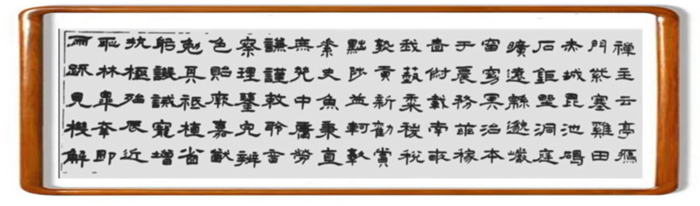 禪主云亭鴈
門紫塞雞田
赤城昆池碣
石鉅壄洞庭
曠遠緜邈巖
岫杳冥治本
于農務茲稼
穡俶載南畝
我藝黍稷稅
孰貢新勸賞
黜陟孟軻敦
素史魚秉直
庶幾中庸勞
謙謹敕聆音
察理鑒皃辨
色貽厥嘉猷
勉其祗植省
躬譏誡寵增
抗極殆辱近
恥林皋幸即
兩疏見機解